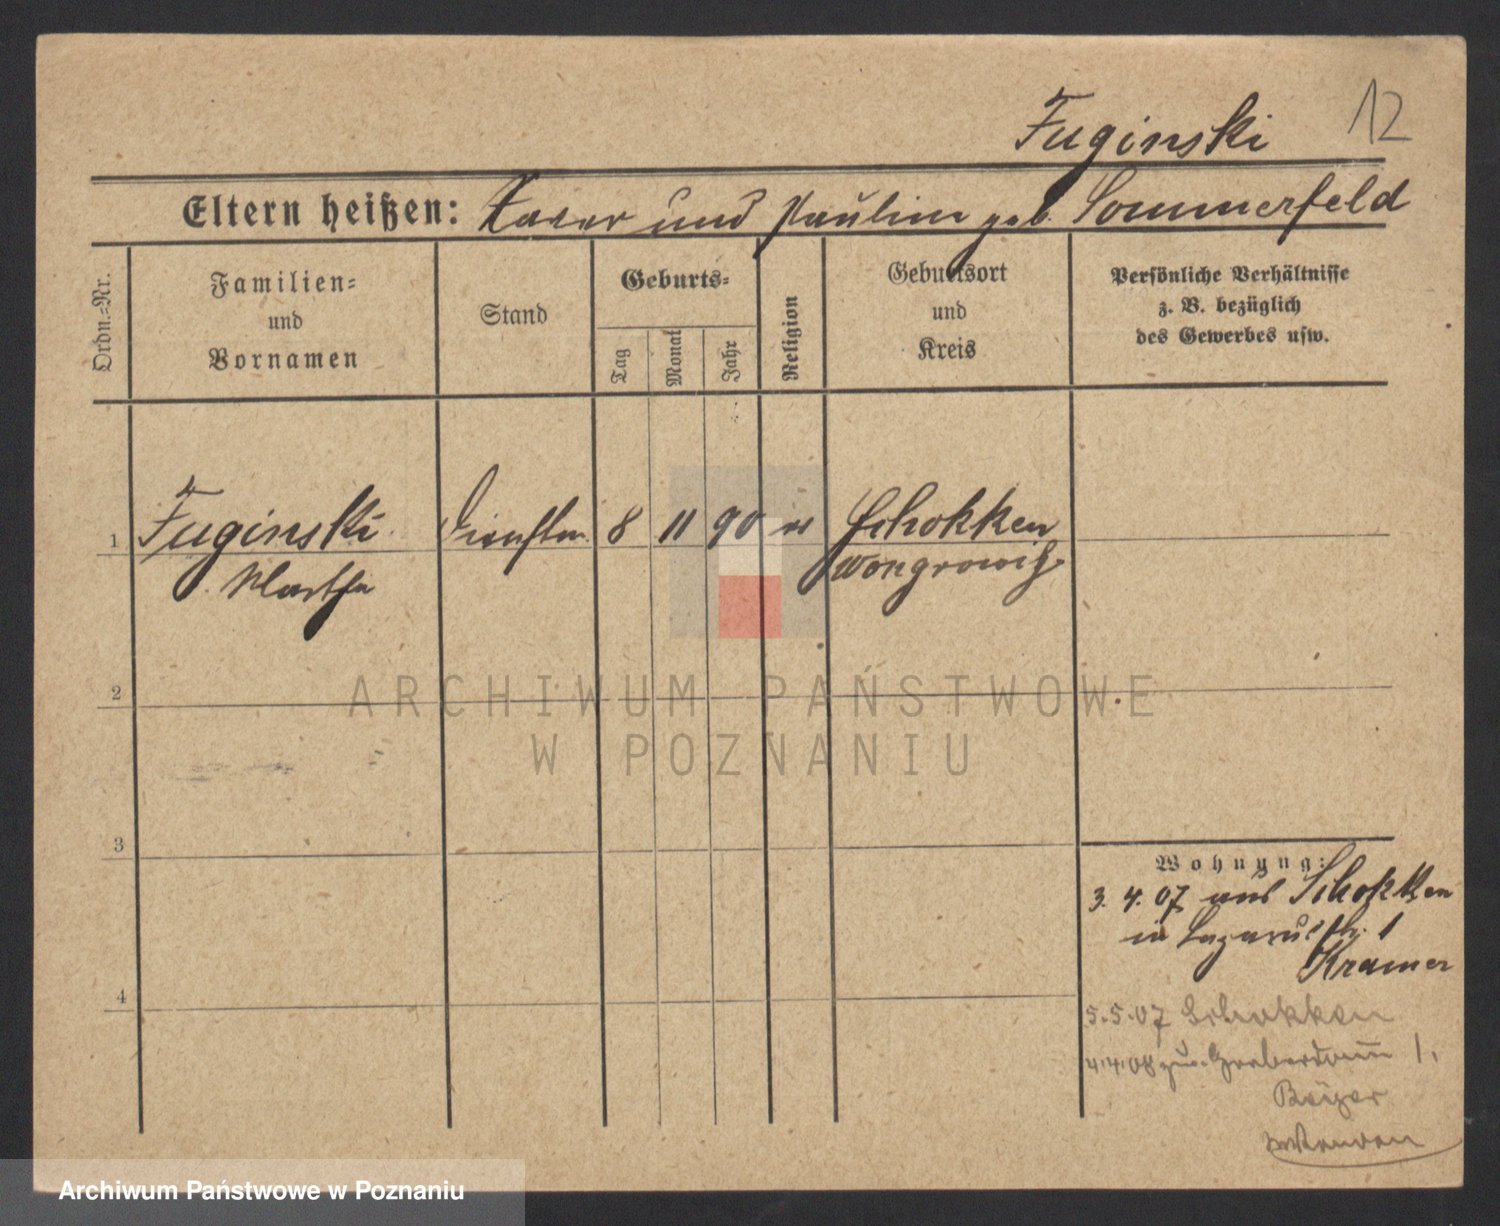 Fuginski 12
Eltern heißen: Xaver und Paulin geb. Sommerfeld
Ordn.-Nr.
Familien-
und
Vornamen
Stand
Geburts-
Tag
Monat
Jahr
Religion
Geburtsort
und
Kreis
Persönliche Verhältnisse
z. B. bezüglich
des Gewerbes usw.
1 Fuginski Dienstm. 8 11 90 Schokken
Martha Wongrowitz
ARCHIWUM PAŃSTWOWE
W POZNANIU
2
3
4
Wohnung:
3. 4. 07 aus Schokken
in Lazarusstr. 1
Kramer
5.5.07 Schokken
4.4.08 Grabendamm 1.
Archiwum Państwowe w Poznaniu